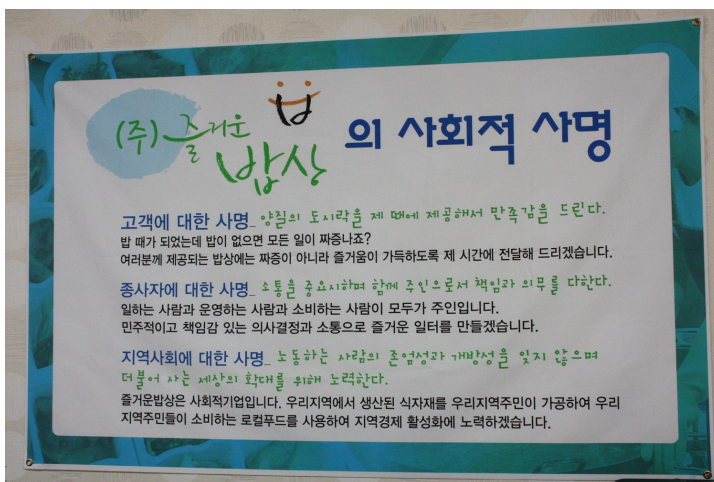 (주)즐거운 밥상 의 사회적 사명
고객에 대한 사명_ 양질의 도시락을 제 때에 제공해서 만족감을 드린다.
밥 때가 되었는데 밥이 없으면 모든 일이 짜증나죠?
여러분께 제공되는 밥상에는 짜증이 아니라 즐거움이 가득하도록 제 시간에 전달해 드리겠습니다.
종사자에 대한 사명_ 소통을 중요시하며 함께 주인으로서 책임과 의무를 다한다.
일하는 사람과 운영하는 사람과 소비하는 사람이 모두가 주인입니다.
민주적이고 책임감 있는 의사결정과 소통으로 즐거운 일터를 만들겠습니다.
지역사회에 대한 사명_ 노동하는 사람의 존엄성과 개방성을 잊지 않으며
더불어 사는 세상의 확대를 위해 노력한다.
즐거운밥상은 사회적기업입니다. 우리지역에서 생산된 식자재를 우리지역주민이 가공하여 우리
지역주민들이 소비하는 로컬푸드를 사용하여 지역경제 활성화에 노력하겠습니다.